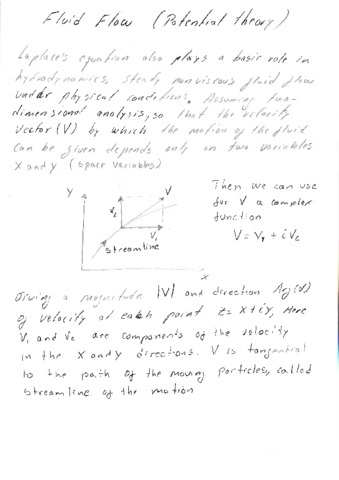 Fluid Flow (Potential theory)
Laplace's equation also plays a basic role in
hydrodynamics, steady nonviscous fluid flow
under physical conditions. Assuming two-
dimensional analysis, so that the velocity
vector (V) by which the motion of the fluid
can be given depends only on two variables
X and y (space variables)
Y
V
V₂
V₁
streamline
X
Then we can use
for V a complex
function
V = V₁ + iV₂
Giving a magnitude |V| and direction Arg(V)
of velocity at each point z = x + iY, Here
V₁ and V₂ are components of the velocity
in the X and y directions. V is tangential
to the path of the moving particles, called
streamline of the motion